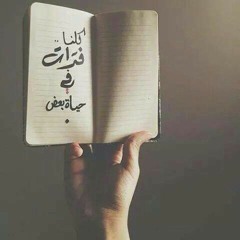 كلنا ..
فترات
في
حياة بعض
.